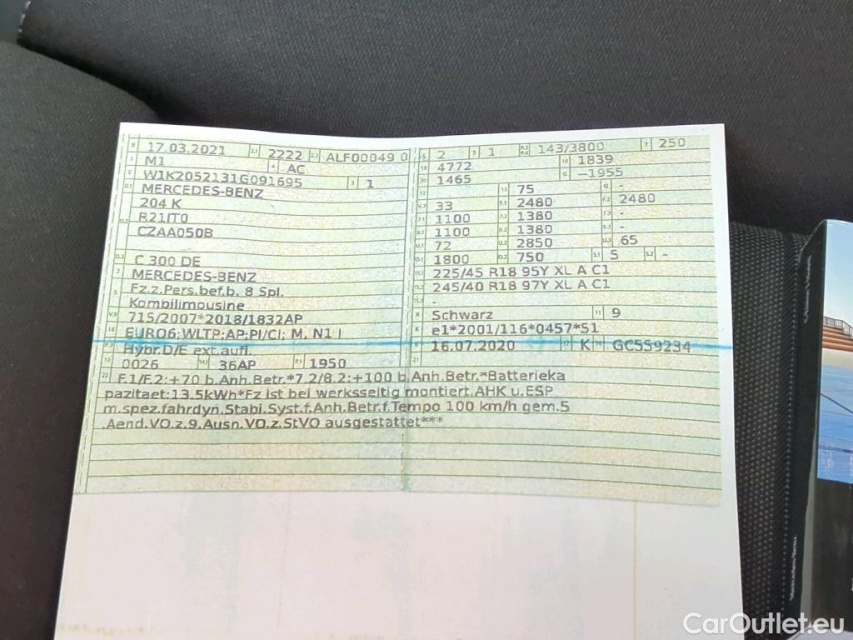 17.03.2021 2222 ALF00049 0 2 1 143/3800 250
M1 AC 4772 1839
W1K2052131G091695 1 1465 -1955
MERCEDES-BENZ 75 -
204 K 33 2480 2480
R21IT0 1100 1380 -
CZAA050B 1100 1380 -
72 2850 65
C 300 DE 1800 750 5 -
MERCEDES-BENZ 225/45 R18 95Y XL A C1
Fz.z.Pers.bef.b. 8 Spl. 245/40 R18 97Y XL A C1
Kombilimousine -
715/2007*2018/1832AP Schwarz 9
EURO6;WLTP;AP;PI/CI; M, N1 I e1*2001/116*0457*51
Hybr.D/E ext.aufl. 16.07.2020 K GC559234
0026 36AP 1950
F.1/F.2:+70 b.Anh.Betr.*7.2/8.2:+100 b.Anh.Betr.*Batterieka
pazitaet:13.5kWh*Fz ist bei werksseitig montiert.AHK u.ESP
m.spez.fahrdyn.Stabi.Syst.f.Anh.Betr.f.Tempo 100 km/h gem.5
.Aend.VO.z.9.Ausn.VO.z.StVO ausgestattet***
CarOutlet.eu